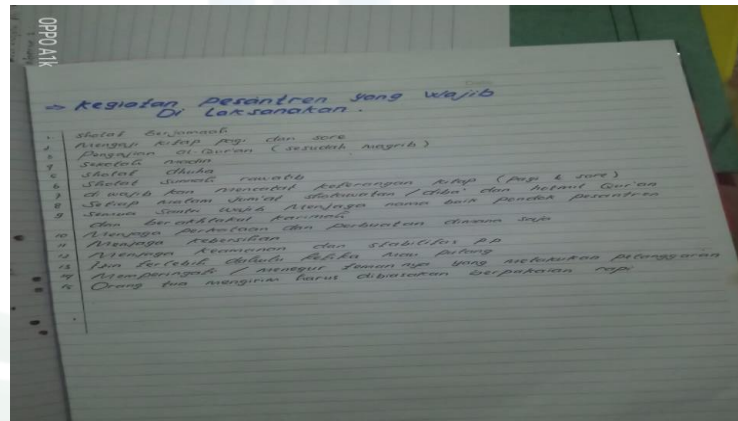 OPPO A1k
=> Kegiatan pesantren yang wajib
Di Laksanakan.
1 Sholat Berjamaah
2 Mengaji kitap pagi dan sore
3 Pengajian al-Qur'an (sesudah magrib)
4 Sekolah madin
5 Sholat dhuha
6 Sholat Sunnah rawatib
7 di wajib kan mencatat keterangan kitap (pagi & sore)
8 Setiap malam jum'at sholawatan / diba' dan hotmil Qur'an
9 Semua Santri wajib Menjaga nama baik pondok pesantren
dan berakhlakul karimah
10 Menjaga perkataan dan perbuatan dimana saja
11 Menjaga kebersihan
12 Menjaga keamanan dan stabilitas p.p
13 Izin terlebih dahulu ketika mau pulang
14 Memperingati / menegur teman nya yang melakukan pelanggaran
15 Orang tua mengirim harus dibiasakan berpakaian rapi